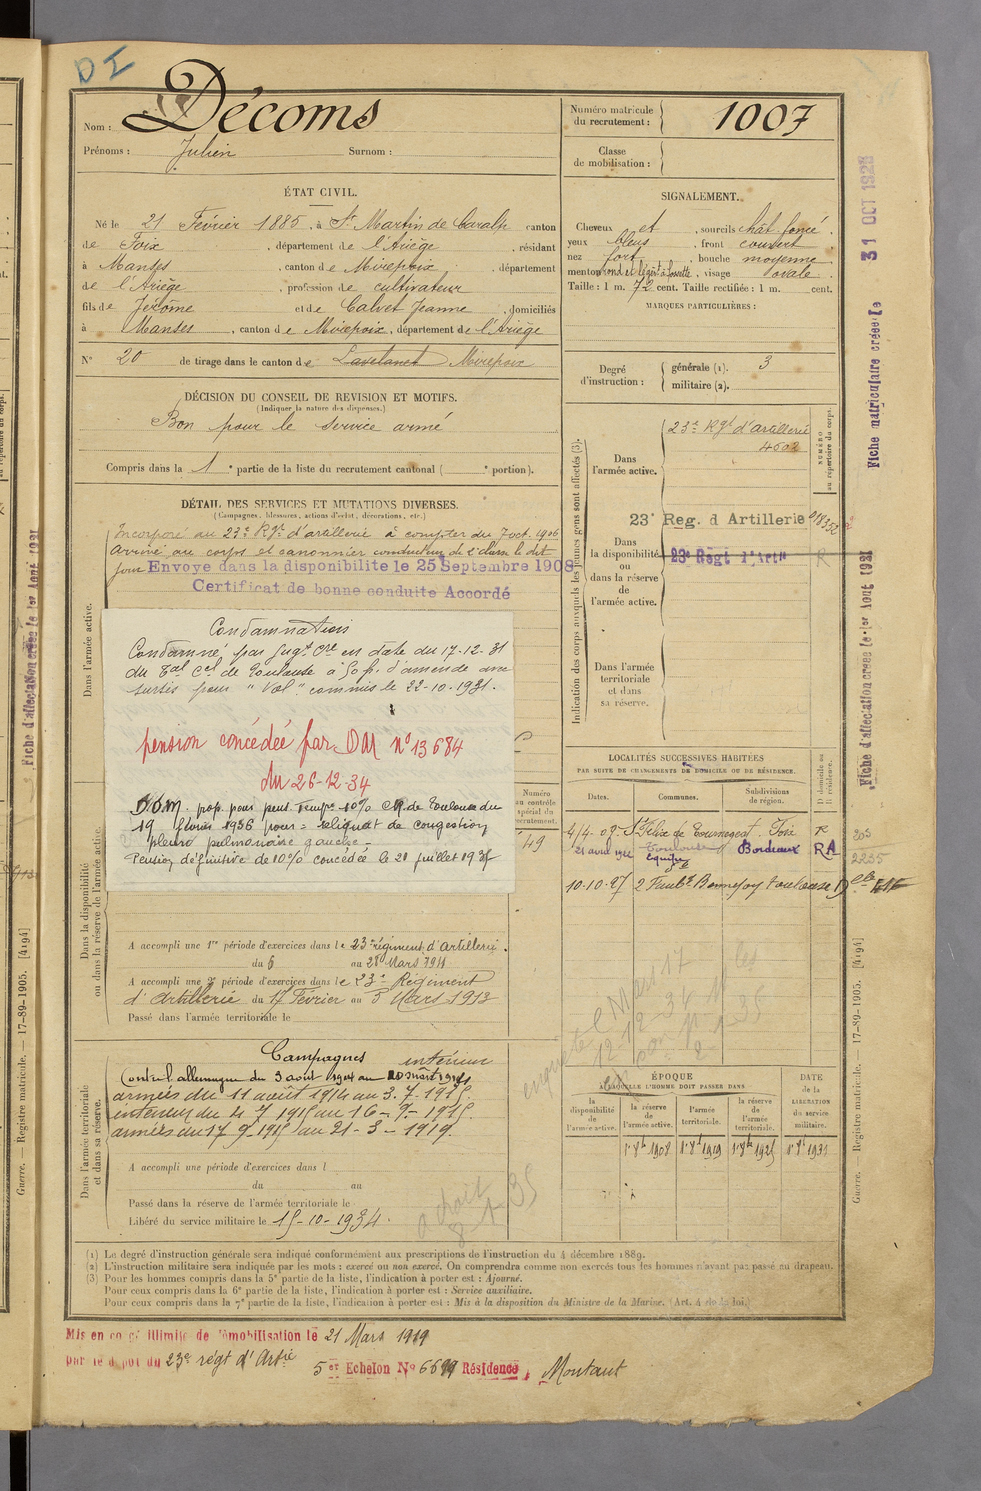 DI
Nom : Décoms
Prénoms : Julien Surnom :
Numéro matricule du recrutement : 1007
Classe de mobilisation :
ÉTAT CIVIL.
Né le 21 Février 1885, à St Martin de Caralp canton
de Foix, département de l'Ariège, résidant
à Manses, canton de Mirepoix, département
de l'Ariège, profession de cultivateur
fils de Jérôme et de Calvet Jeanne, domiciliés
à Manses, canton de Mirepoix, département de l'Ariège
N° 20 de tirage dans le canton de Lavelanet Mirepoix
SIGNALEMENT.
Cheveux et, sourcils chât foncé.
yeux bleus, front couvert
nez fort, bouche moyenne
menton rond et léger à fossette, visage ovale.
Taille : 1 m. 72 cent. Taille rectifiée : 1 m. cent.
MARQUES PARTICULIÈRES :
Degré d'instruction : générale (1). 3
militaire (2).
DÉCISION DU CONSEIL DE REVISION ET MOTIFS.
(Indiquer la nature des dispenses.)
Bon pour le service armé
Compris dans la 1e partie de la liste du recrutement cantonal ( e portion).
DÉTAIL DES SERVICES ET MUTATIONS DIVERSES.
(Campagnes, blessures, actions d'éclat, décorations, etc.)
Dans l'armée active.
Incorporé au 23e Rgt d'artillerie à compter du 7 oct. 1906
arrivé au corps et canonnier conducteur de 2e classe le dit
jour Envoyé dans la disponibilité le 25 Septembre 1908
Certificat de bonne conduite Accordé
Condamnation
Condamné, par jugt Cre en date du 17-12-31
du Tal Cel de Toulouse à 50 fr. d'amende avec
sursis pour "Vol" commis le 22-10-1931.
pension concédée par DM n° 13684
du 26-12-34
D.O.M. prop. pour pens. temp. 10% CR de Toulouse du
19 février 1936 pour : reliquat de congestion
pleuro pulmonaire gauche.
Pension définitive de 10% concédée le 21 juillet 1937
Indication des corps auxquels les jeunes gens sont affectés (3).
NUMÉRO au répertoire du corps.
Dans l'armée active.
23e Rgt d'artillerie
4602
23e Reg. d Artillerie 918352
Dans la disponibilité ou dans la réserve de l'armée active.
23e Regt d'Artie R
Dans l'armée territoriale et dans sa réserve.
LOCALITÉS SUCCESSIVES HABITÉES
PAR SUITE DE CHANGEMENTS DE DOMICILE OU DE RÉSIDENCE.
Dates. Communes. Subdivisions de région. D domicile ou R résidence.
4/4-09 St Félix de Tournegat Foix R
21 avril 1922 Toulouse Bordeaux RA
10-10-27 2 Faubg Bonnefoy Toulouse D
203
2235
Numéro au contrôle spécial du recrutement.
49
Dans la disponibilité ou dans la réserve de l'armée active.
A accompli une 1re période d'exercices dans le 23e régiment d'Artillerie.
du 6 au 28 Mars 1911
A accompli une 2e période d'exercices dans le 23e Régiment
d'Artillerie du 17 Février au 5 Mars 1913
Passé dans l'armée territoriale le
Dans l'armée territoriale et dans sa réserve.
Campagnes intérieur
Contre l'allemagne du 3 août 1914 au 10 août 1914
armées du 11 août 1914 au 3-7-1915.
intérieur du 4 7 1915 au 16-9-1915
armées du 17 9-1915 au 21-3-1919.
A accompli une période d'exercices dans l
du au
Passé dans la réserve de l'armée territoriale le
Libéré du service militaire le 15-10-1934.
a droit
8-1-35
ÉPOQUE
A LAQUELLE L'HOMME DOIT PASSER DANS
DATE de la LIBÉRATION du service militaire.
la disponibilité de l'armée active. la réserve de l'armée active. l'armée territoriale. la réserve de l'armée territoriale.
1er 8bre 1908 1er 8bre 1919 1er 8bre 1925 1er 8bre 1931
(1) Le degré d'instruction générale sera indiqué conformément aux prescriptions de l'instruction du 4 décembre 1889.
(2) L'instruction militaire sera indiquée par les mots : exercé ou non exercé. On comprendra comme non exercés tous les hommes n'ayant pas passé au drapeau.
(3) Pour les hommes compris dans la 5e partie de la liste, l'indication à porter est : Ajourné.
Pour ceux compris dans la 6e partie de la liste, l'indication à porter est : Service auxiliaire.
Pour ceux compris dans la 7e partie de la liste, l'indication à porter est : Mis à la disposition du Ministre de la Marine. (Art. 4 de la loi.)
Mis en congé illimité de démobilisation le 21 Mars 1919
par le dépôt du 23e régt d'Artie
5er Echelon N° 6699 Résidence, Montaut
Fiche matriculaire créée le 31 OCT 1928
Fiche d'affectation créée le 1er Août 1931
Guerre. — Registre matricule. — 17-89-1905. [4194]
Fiche d'affectation créée le 1er Août 1931
Guerre. — Registre matricule. — 17-89-1905. [4194]